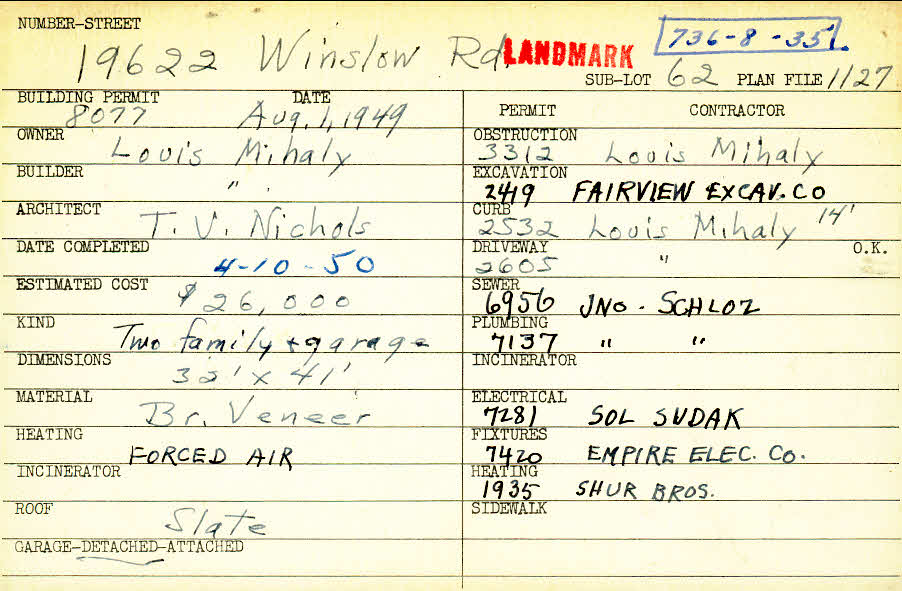 NUMBER-STREET
19622 Winslow Rd. LANDMARK 736-8-35
SUB-LOT 62 PLAN FILE 1127
BUILDING PERMIT DATE
8077 Aug. 1, 1949
OWNER
Louis Mihaly
BUILDER
" .
ARCHITECT
T. V. Nichols
DATE COMPLETED
4-10-50
ESTIMATED COST
$26,000
KIND
Two family + garage
DIMENSIONS
32' x 41'
MATERIAL
Br. Veneer
HEATING
FORCED AIR
INCINERATOR
ROOF
Slate
GARAGE-DETACHED-ATTACHED
PERMIT CONTRACTOR
OBSTRUCTION
3312 Louis Mihaly
EXCAVATION
2419 FAIRVIEW EXCAV. CO
CURB
2532 Louis Mihaly 14'
DRIVEWAY O.K.
2605 "
SEWER
6956 JNO. SCHLOZ
PLUMBING
7137 " "
INCINERATOR
ELECTRICAL
7281 SOL SUDAK
FIXTURES
7420 EMPIRE ELEC. CO.
HEATING
1935 SHUR BROS.
SIDEWALK